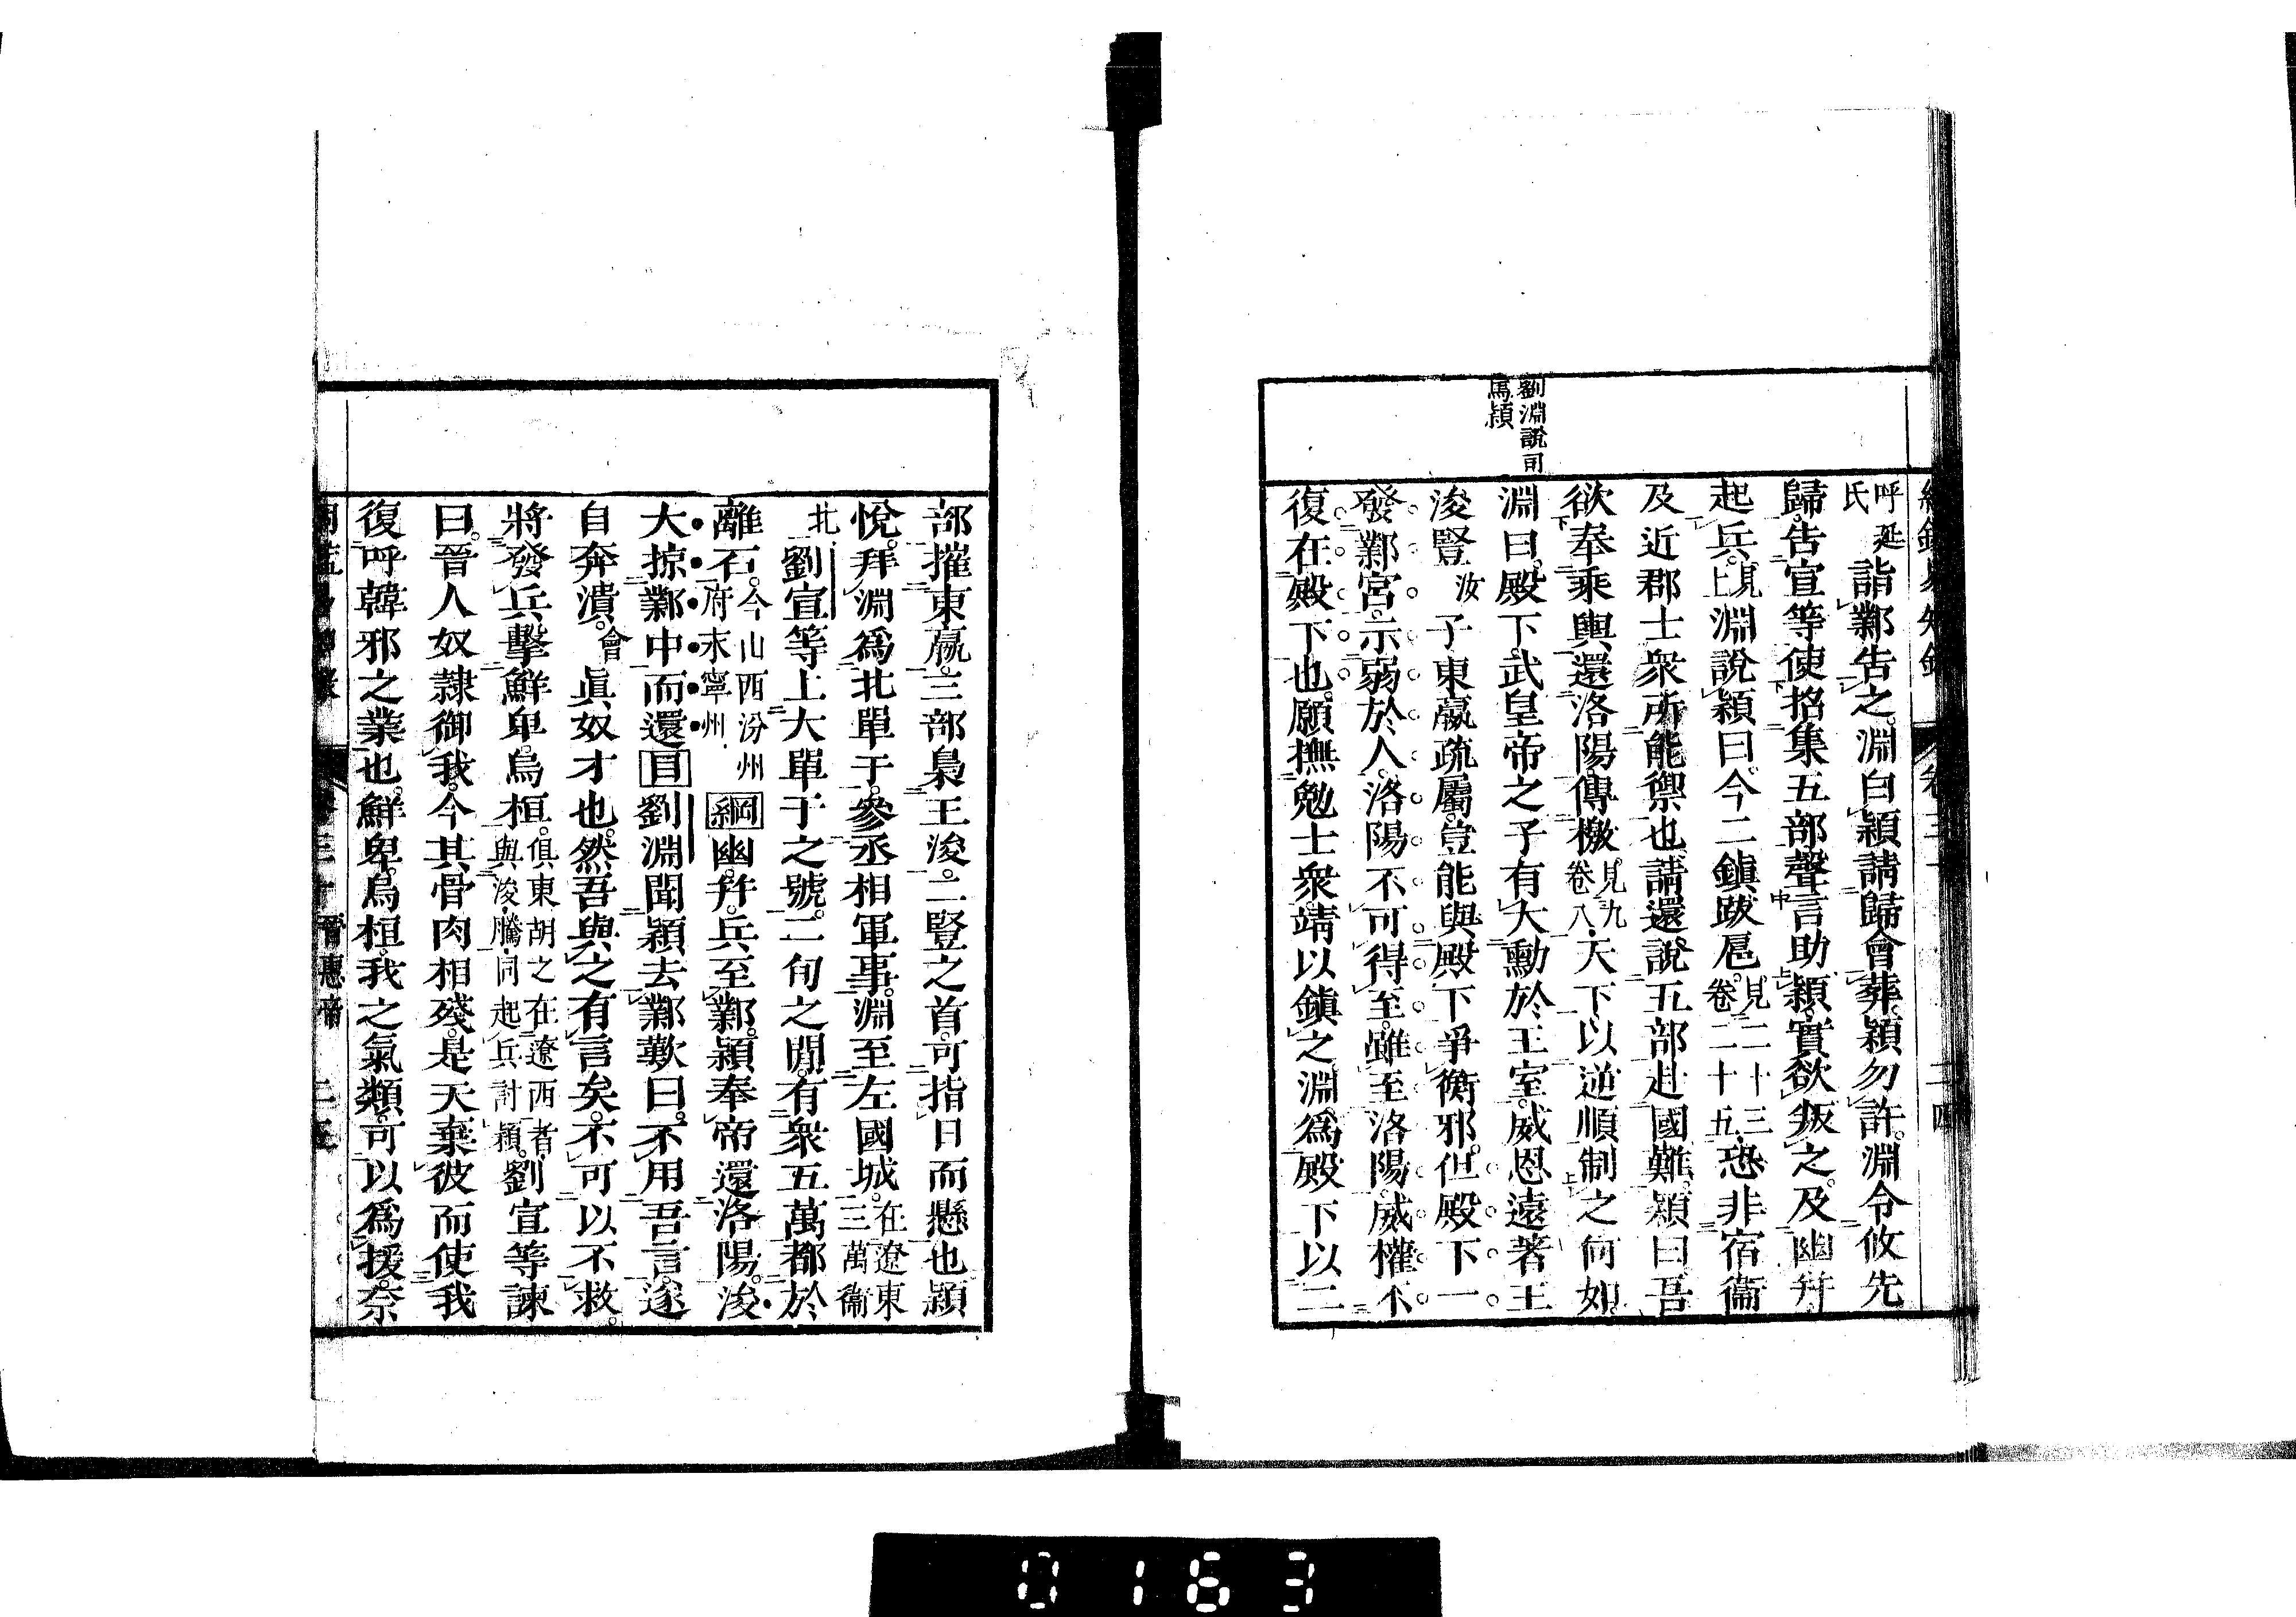 劉淵說司
馬穎
呼延
氏
詣鄴告之。淵白穎請歸會葬。穎勿許。淵令攸先
歸。告宣等使招集五部聲言助穎。實欲叛之。及幽幷
起兵。見上淵說穎曰。今二鎮跋扈。見二十三卷二十五恐非宿衞
及近郡士衆所能禦也。請還說五部赴國難。穎曰吾
欲奉乘輿還洛陽。傳檄見九卷八天下以逆順制之何如。
淵曰。殿下武皇帝之子有大勳於王室。威恩遠著王
浚豎汝子東嬴疏屬。豈能與殿下爭衡邪。但殿下一
發鄴宮。示弱於人。洛陽不可得至。雖至洛陽。威權不
復在殿下也。願撫勉士衆。靖以鎮之。淵爲殿下以二
部摧東嬴。三部梟王浚。二豎之首。可指日而懸也穎
悅。拜淵爲北單于。參丞相軍事。淵至左國城。在遼東三萬衞
北劉宣等上大單于之號。二旬之閒。有衆五萬都於
離石。今山西汾州府末寧州綱幽幷兵至鄴。穎奉帝還洛陽。浚
大掠鄴中而還目劉淵聞穎去鄴歎曰。不用吾言。遂
自奔潰。會眞奴才也。然吾與之有言矣。不可以不救。
將發兵擊鮮卑烏桓。俱東胡之在遼西者與浚騰同起兵討穎劉宣等諫
曰。晉人奴隸御我。今其骨肉相殘。是天棄彼而使我
復呼韓邪之業也。鮮卑烏桓。我之氣類。可以爲援。奈
晉惠帝
0163